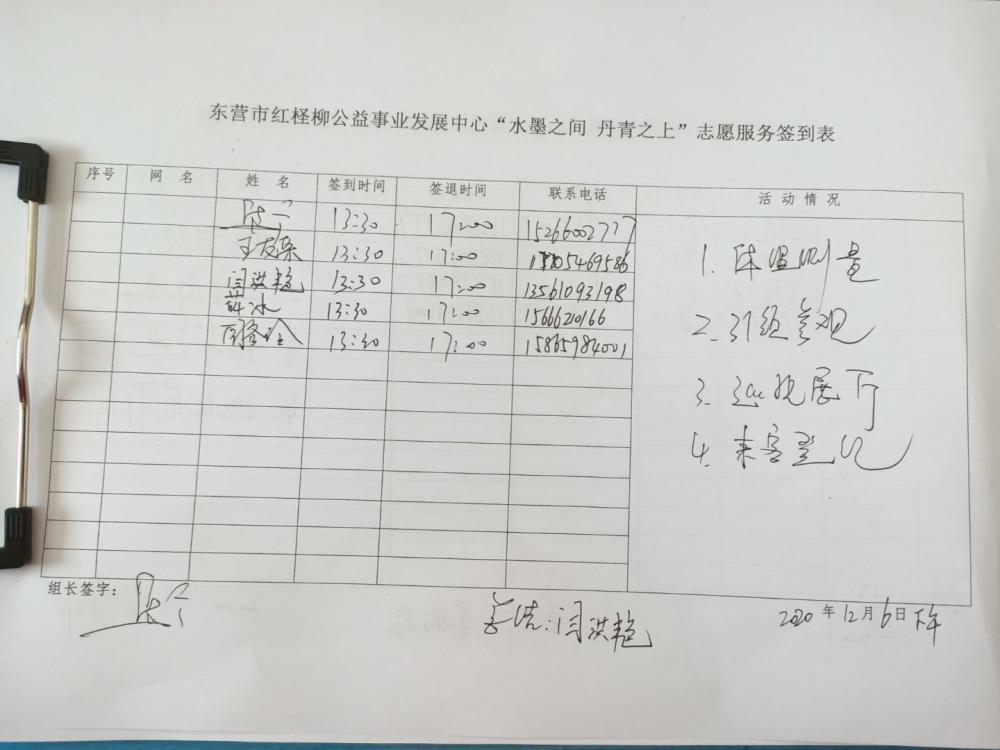 东营市红柽柳公益事业发展中心“水墨之间 丹青之上”志愿服务签到表
序号 网 名 姓 名 签到时间 签退时间 联系电话 活动情况
13:30 17:00 15266002777
王友荣 13:30 17:00 05469586
闫洪艳 13:30 17:00 13561093198
冰 13:30 17:00 15666210166
13:30 17:00 15865984001
1. 体温测量
2. 引领参观
3. 巡视展厅
4. 来客登记
组长签字：
闫洪艳
2020 年 12 月 6 日 下午